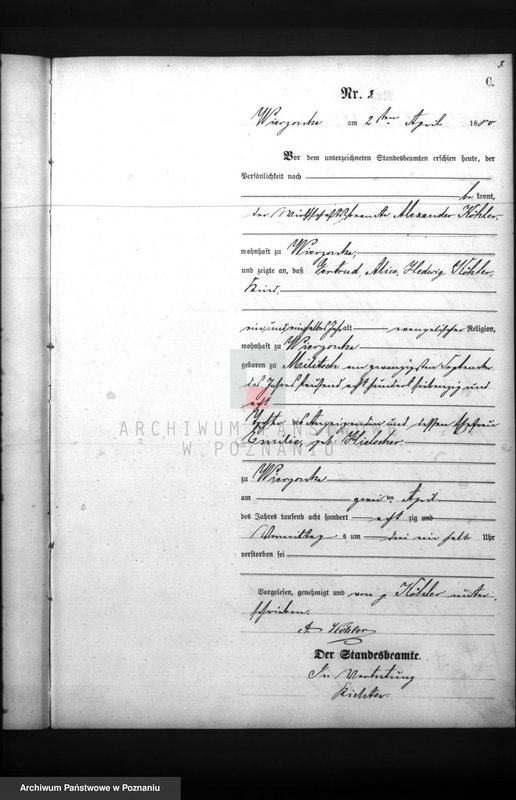 3.
C.
Nr. 3.
Wierzonka am 2 ten April 1880
Vor dem unterzeichneten Standesbeamten erschien heute, der
Persönlichkeit nach
be kannt,
der Wirthschaftsbeamte Alexander Köhler,
wohnhaft zu Wierzonka,
und zeigte an, daß Gertrud, Alice, Hedwig Köhler,
Kind,
ein und einhalbes Jahr alt evangelischer Religion,
wohnhaft zu Wierzonka
geboren zu Militsch am zwanzigsten September
des Jahres tausend acht hundert siebenzig und
acht
Tochter des Anzeigenden und dessen Ehefrau
Emilie, geb. Hielscher
zu Wierzonka
am zwei ten April
des Jahres tausend acht hundert acht zig und
Vormittag s um drei ein halb Uhr
verstorben sei
Vorgelesen, genehmigt und von p. Köhler unter-
schrieben.
A. Köhler
Der Standesbeamte.
In Vertretung
Richter
ARCHIWUM PAŃSTWOWE
W POZNANIU
Archiwum Państwowe w Poznaniu